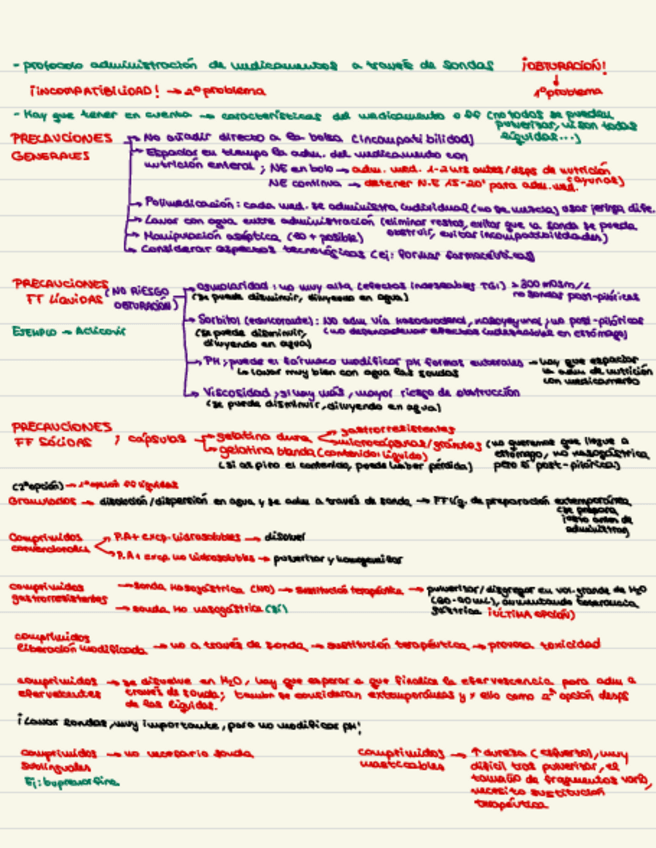 - protocolo administración de medicamentos a través de sondas ¡OBTURACIÓN!
¡INCOMPATIBILIDAD! → 2º problema 1º problema
- Hay que tener en cuenta → características del medicamento o FF (no todos se pueden
pulverizar, ni son todas
líquidas...)
PRECAUCIONES
GENERALES
→ No añadir directo a la bolsa (incompatibilidad)
→ Espaciar en tiempo la adm. del medicamento con
nutrición enteral ; NE en bolo → adm. med. 1-2 hrs antes/dsps de nutrición
(ayunas)
NE continua → detener N.E 15-20' para adm. med.
→ Polimedicación: cada med. se administra individual (no se mezcla) usar jeringa dife.
→ Lavar con agua entre administración (eliminar restos, evitar que la sonda se pueda
obstruir, evitar incompatibilidades)
→ Manipulación aséptica (lo + posible)
→ Considerar aspectos tecnológicos (ej: formas farmacéuticas)
PRECAUCIONES
FF LÍQUIDAS (NO RIESGO
OBTURACIÓN)
EJEMPLO → Aciclovir
→ Osmolaridad: no muy alta (efectos indeseables TGI) > 300 mOsm/L
(se puede disminuir, diluyendo en agua) no sondas post-pilóricas
→ Sorbitol (edulcorante): No adm vía nasoduodenal, nasoyeyunal; no post-pilóricas
(se puede disminuir,
diluyendo en agua)
→ PH; puede el fármaco modificar pH formas enterales → hay que espaciar
↳ Lavar muy bien con agua las sondas la adm de nutrición
con medicamento
→ Viscosidad; si hay más, mayor riesgo de obstrucción
(se puede disminuir, diluyendo en agua)
PRECAUCIONES
FF SÓLIDAS ; cápsulas
→ gelatina dura → gastrorresistentes
→ microcápsulas/gránulos (no queremos que llegue a
estómago, no nasogástrica
pero sí post-pilóricas)
→ gelatina blanda (contenido líquido)
(si aspiro el contenido, puede haber pérdida)
(2ª opción) → 1ª opción FF líquidas
Granulados → disolución/dispersión en agua y se adm a través de sonda → FF líq. de preparación extemporánea
(se prepara
justo antes de
administrar)
Comprimidos
convencionales
→ P.A + excp. hidrosolubles → disolver
→ P.A + excp no hidrosolubles → pulverizar y homogeneizar
comprimidos
gastrorresistentes
→ sonda nasogástrica (NO) → sustitución terapéutica → pulverizar/disgregar en vol. grande de H₂O
gástrica (ÚLTIMA OPCIÓN)
→ sonda no nasogástrica (SÍ)
comprimidos
liberación modificada → no a través de sonda → sustitución terapéutica → provoca toxicidad
comprimidos
efervescentes → se disuelve en H₂O, hay que esperar a que finalice la efervescencia para adm a
través de sonda; también se consideran extemporáneas y x ello como 2ª opción dsps
de las líquidas.
¡Lavar sondas, muy importante, para no modificar pH!
comprimidos
sublinguales → no necesario sonda
Ej: buprenorfina
comprimidos
masticables → ↑ dureza (esfuerzo), muy
difícil tras pulverizar, el
tamaño de fragmentos varía,
necesito sustitución
terapéutica